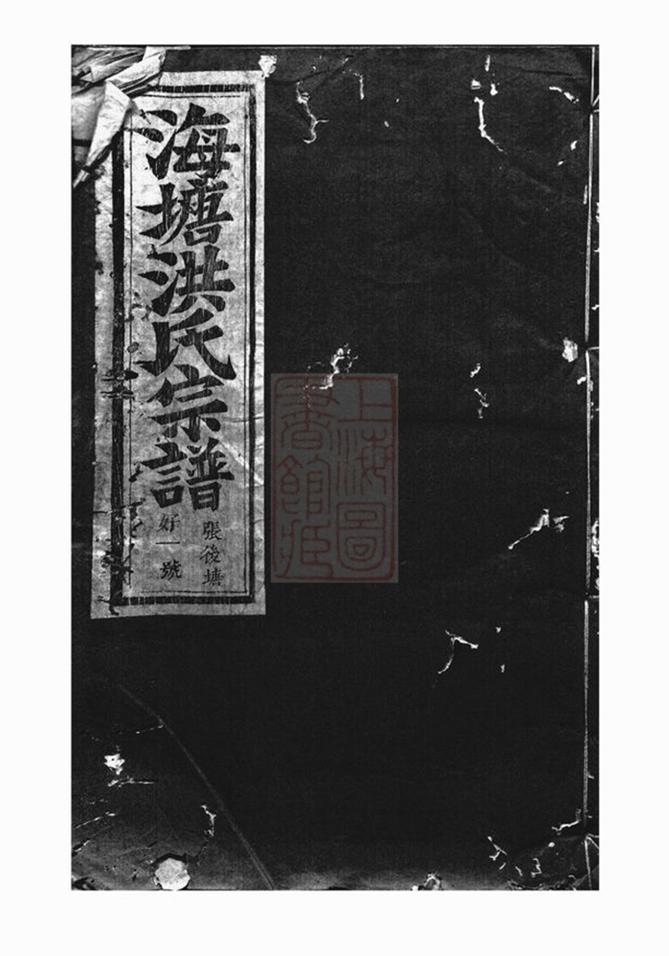 海塘洪氏宗譜
張後塘
好一號
上海圖
書館藏